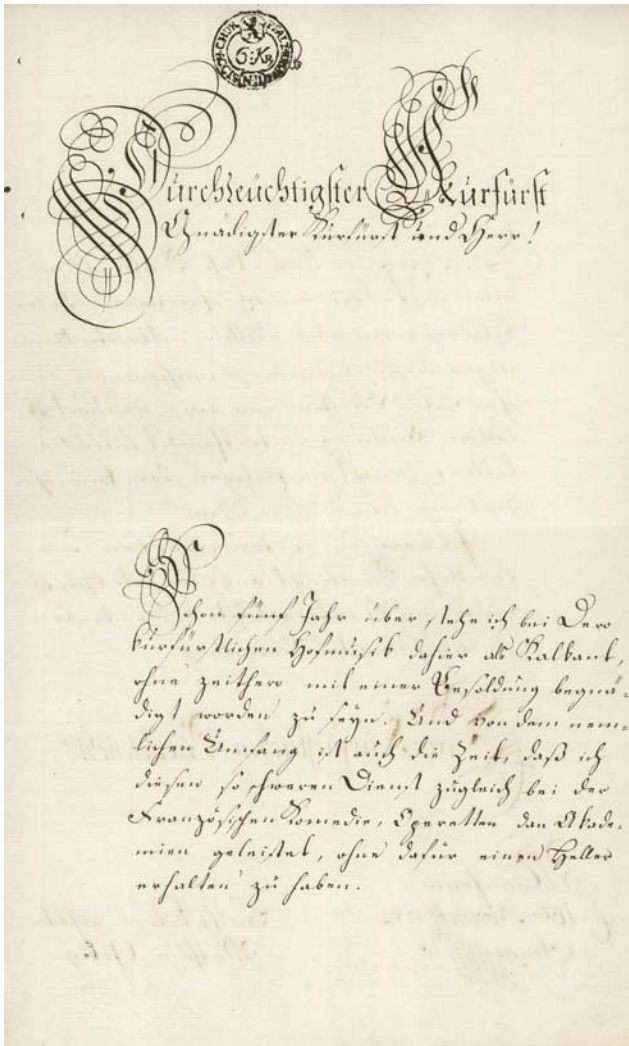 6: Kr
Durchleüchtigster Kurfürst
Gnädigster Kurfürst und Herr!
Schon fünf Jahr über stehe ich bei Dero
kurfürstlichen Hofmusik dahier als Kalkant,
ohne zeithero mit einer Besoldung begnä-
digt worden zu seyn. Und von dem nem-
lichen Anfang ist auch die Zeit, daß ich
diesen so schweren Dienst zugleich bei der
Französischen Komedie, Operetten dan Akade-
mien geleistet, ohne dafür einen Heller
erhalten zu haben.